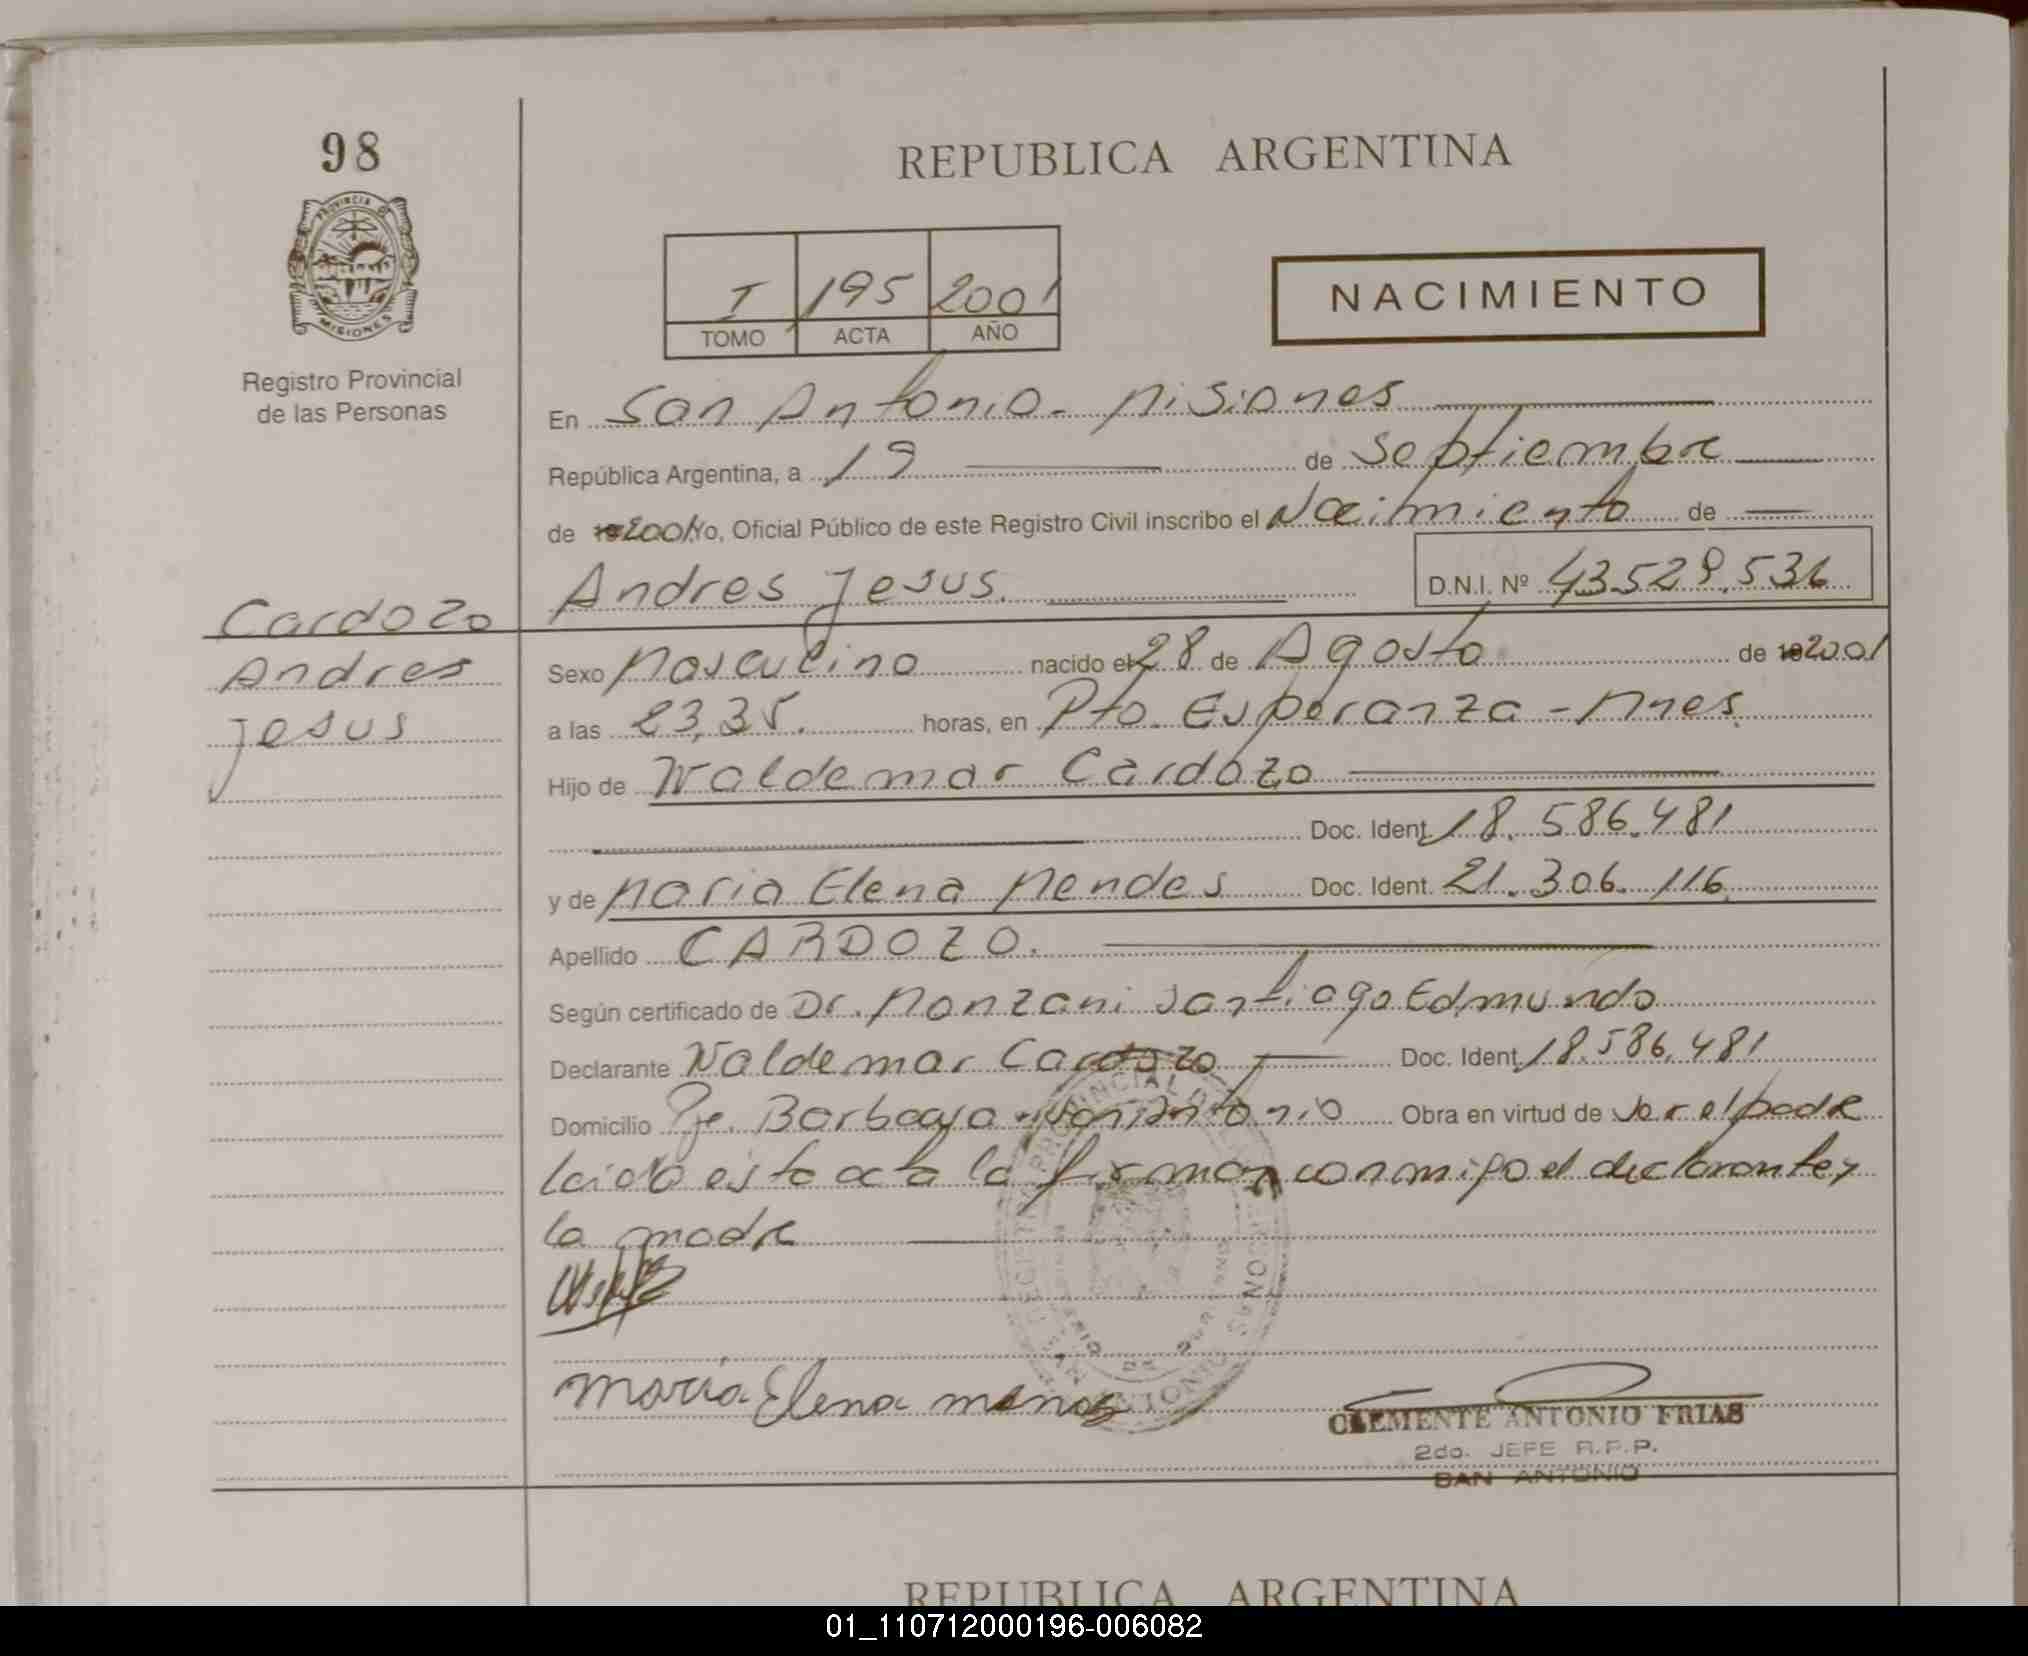 98
REPUBLICA ARGENTINA
PROVINCIA DE
MISIONES
Registro Provincial
de las Personas
I 195 2001
TOMO ACTA AÑO
NACIMIENTO
En San Antonio - Misiones
República Argentina, a 19 de Septiembre
de 2001 Yo, Oficial Público de este Registro Civil inscribo el Nacimiento de
Andres Jesus. D.N.I. Nº 43.529.536
Cardozo
Andres
Jesus
Sexo Masculino nacido el 28 de Agosto de 2001
a las 23,35. horas, en Pto. Esperanza - Mnes.
Hijo de Waldemar Cardozo
Doc. Ident. 18.586.481
y de Maria Elena Mendes Doc. Ident. 21.306.116
Apellido CARDOZO.
Según certificado de Dr. Monzani Santiago Edmundo
Declarante Waldemar Cardozo Doc. Ident. 18.586.481
Domicilio Pje. San Antonio Obra en virtud de Ser el padre
Leida esta acta la firman conmigo el declarante y
la madre
Maria Elena
CLEMENTE ANTONIO FRIAS
2do. JEFE R.P.P.
SAN ANTONIO
REPUBLICA ARGENTINA
01_110712000196-006082